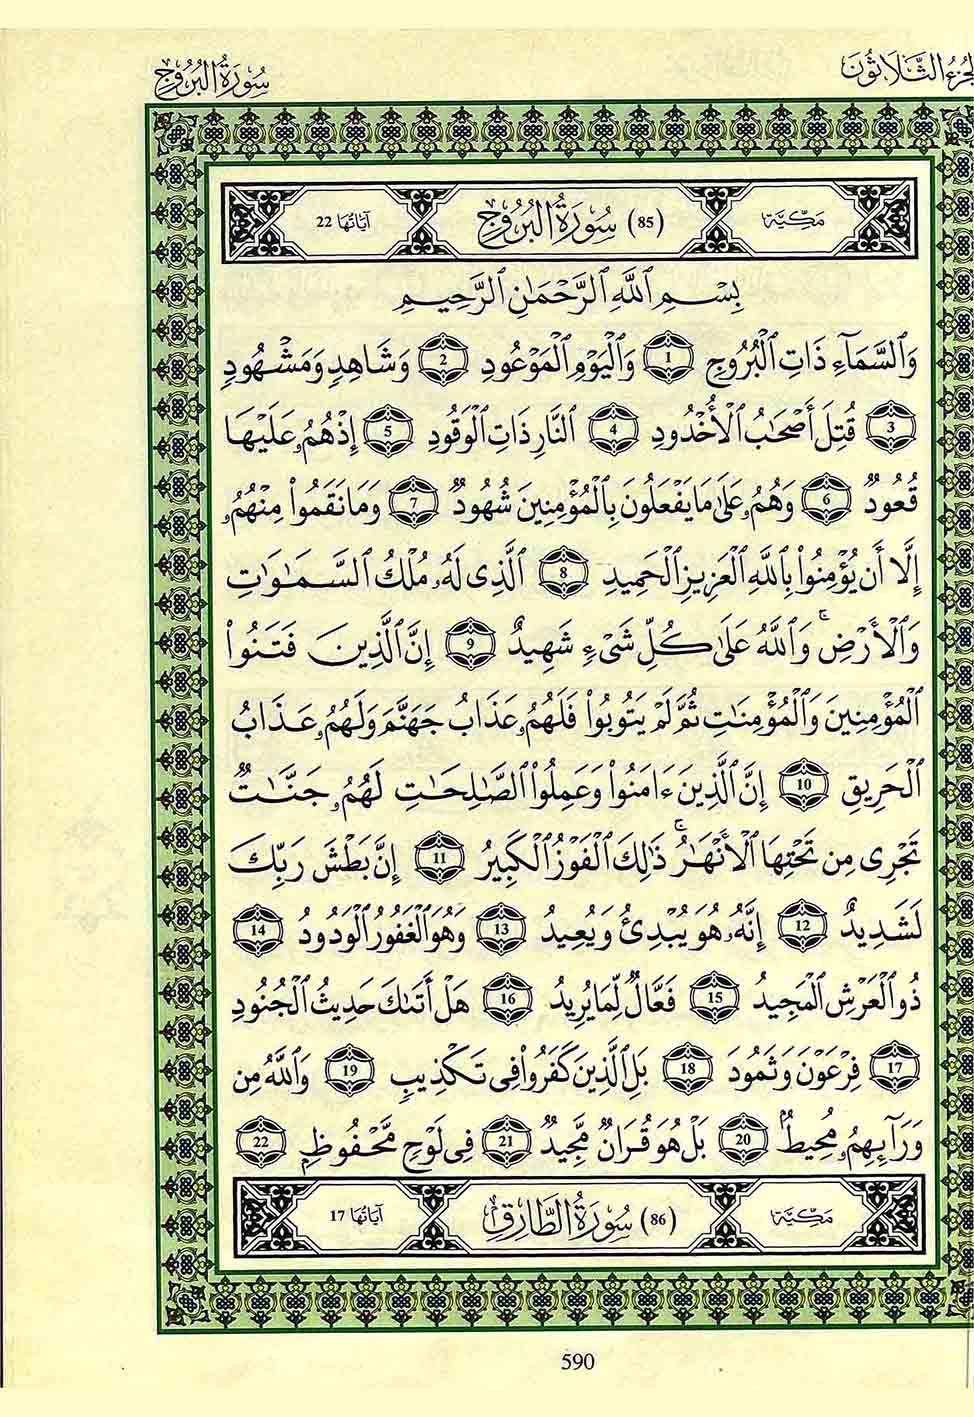 الجُزْءُ الثَّلَاثُونَ سُورَةُ البُرُوجِ
مَكِّيَّة (85) سُورَةُ البُرُوجِ آيَاتُهَا 22
بِسْمِ ٱللَّهِ ٱلرَّحْمَٰنِ ٱلرَّحِيمِ
وَٱلسَّمَآءِ ذَاتِ ٱلْبُرُوجِ 1 وَٱلْيَوْمِ ٱلْمَوْعُودِ 2 وَشَاهِدٍ وَمَشْهُودٍ
3 قُتِلَ أَصْحَٰبُ ٱلْأُخْدُودِ 4 ٱلنَّارِ ذَاتِ ٱلْوَقُودِ 5 إِذْ هُمُۥ عَلَيْهَا
قُعُودٌ 6 وَهُمُۥ عَلَىٰ مَا يَفْعَلُونَ بِٱلْمُؤْمِنِينَ شُهُودٌ 7 وَمَا نَقَمُوا۟ مِنْهُمُۥ
إِلَّا أَن يُؤْمِنُوا۟ بِٱللَّهِ ٱلْعَزِيزِ ٱلْحَمِيدِ 8 ٱلَّذِى لَهُۥ مُلْكُ ٱلسَّمَٰوَٰتِ
وَٱلْأَرْضِ ۚ وَٱللَّهُ عَلَىٰ كُلِّ شَىْءٍ شَهِيدٌ 9 إِنَّ ٱلَّذِينَ فَتَنُوا۟
ٱلْمُؤْمِنِينَ وَٱلْمُؤْمِنَٰتِ ثُمَّ لَمْ يَتُوبُوا۟ فَلَهُمُۥ عَذَابُ جَهَنَّمَ وَلَهُمُۥ عَذَابُ
ٱلْحَرِيقِ 10 إِنَّ ٱلَّذِينَ ءَامَنُوا۟ وَعَمِلُوا۟ ٱلصَّٰلِحَٰتِ لَهُمُۥ جَنَّٰتٌ
تَجْرِى مِن تَحْتِهَا ٱلْأَنْهَٰرُ ۚ ذَٰلِكَ ٱلْفَوْزُ ٱلْكَبِيرُ 11 إِنَّ بَطْشَ رَبِّكَ
لَشَدِيدٌ 12 إِنَّهُۥ هُوَ يُبْدِئُ وَيُعِيدُ 13 وَهُوَ ٱلْغَفُورُ ٱلْوَدُودُ 14
ذُو ٱلْعَرْشِ ٱلْمَجِيدُ 15 فَعَّالٌ لِّمَا يُرِيدُ 16 هَلْ أَتَىٰكَ حَدِيثُ ٱلْجُنُودِ
17 فِرْعَوْنَ وَثَمُودَ 18 بَلِ ٱلَّذِينَ كَفَرُوا۟ فِى تَكْذِيبٍ 19 وَٱللَّهُ مِن
وَرَآئِهِمُۥ مُحِيطٌ 20 بَلْ هُوَ قُرَانٌ مَّجِيدٌ 21 فِى لَوْحٍ مَّحْفُوظٍ 22
مَكِّيَّة (86) سُورَةُ الطَّارِقِ آيَاتُهَا 17
590